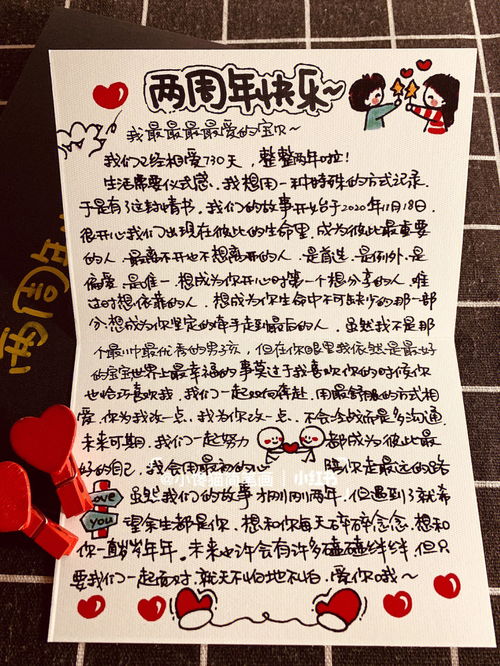 两周年快乐~
我最最最最爱的宝贝~
我们已经相爱730天，整整两年啦！
生活需要仪式感，我想用一种特殊的方式记录.
于是有了这封情书。我们的故事开始于2020年11月18日.
很开心我们出现在彼此的生命里.成为彼此最重要
的人.最离不开也不想离开的人.是首选.是例外.是
偏爱.是唯一.想成为你开心时第一个想分享的人.难
过时想依靠的人.想成为你生命中不可缺少的那一部
分.想成为你坚定的牵手走到最后的人.虽然我不是那
个最帅最优秀的男孩，但在你眼里我依然是最好
的宝宝世界上最幸福的事莫过于我喜欢你的时候你
也恰巧喜欢我.我们一起双向奔赴.用最舒服的方式相
爱.你为我改一点.我为你改一点.不会冷战而是多沟通.
未来可期.我们一起努力 都成为彼此最
好的自己.我会用最初的心 陪你走最远的路
@小馋猫简笔画 | 小红书
Love
you
虽然我们的故事才刚刚两年.但遇到了就希
望余生都是你.想和你每天碎碎念念.想和
你一直岁岁年年.未来也许会有许多磕磕绊绊.但只
要我们一起面对.就天不怕地不怕.爱你哦~